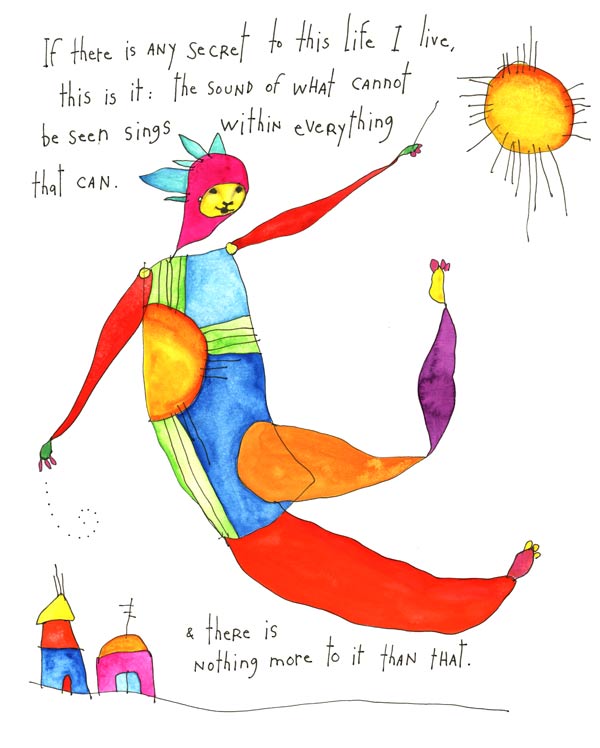 If there is ANY SECRET to this life I live,
this is it: the SOUND OF WHAT CANNOT
be seen sings within everything
that CAN.
& there is
NOTHING MORE TO it THAN THAT.